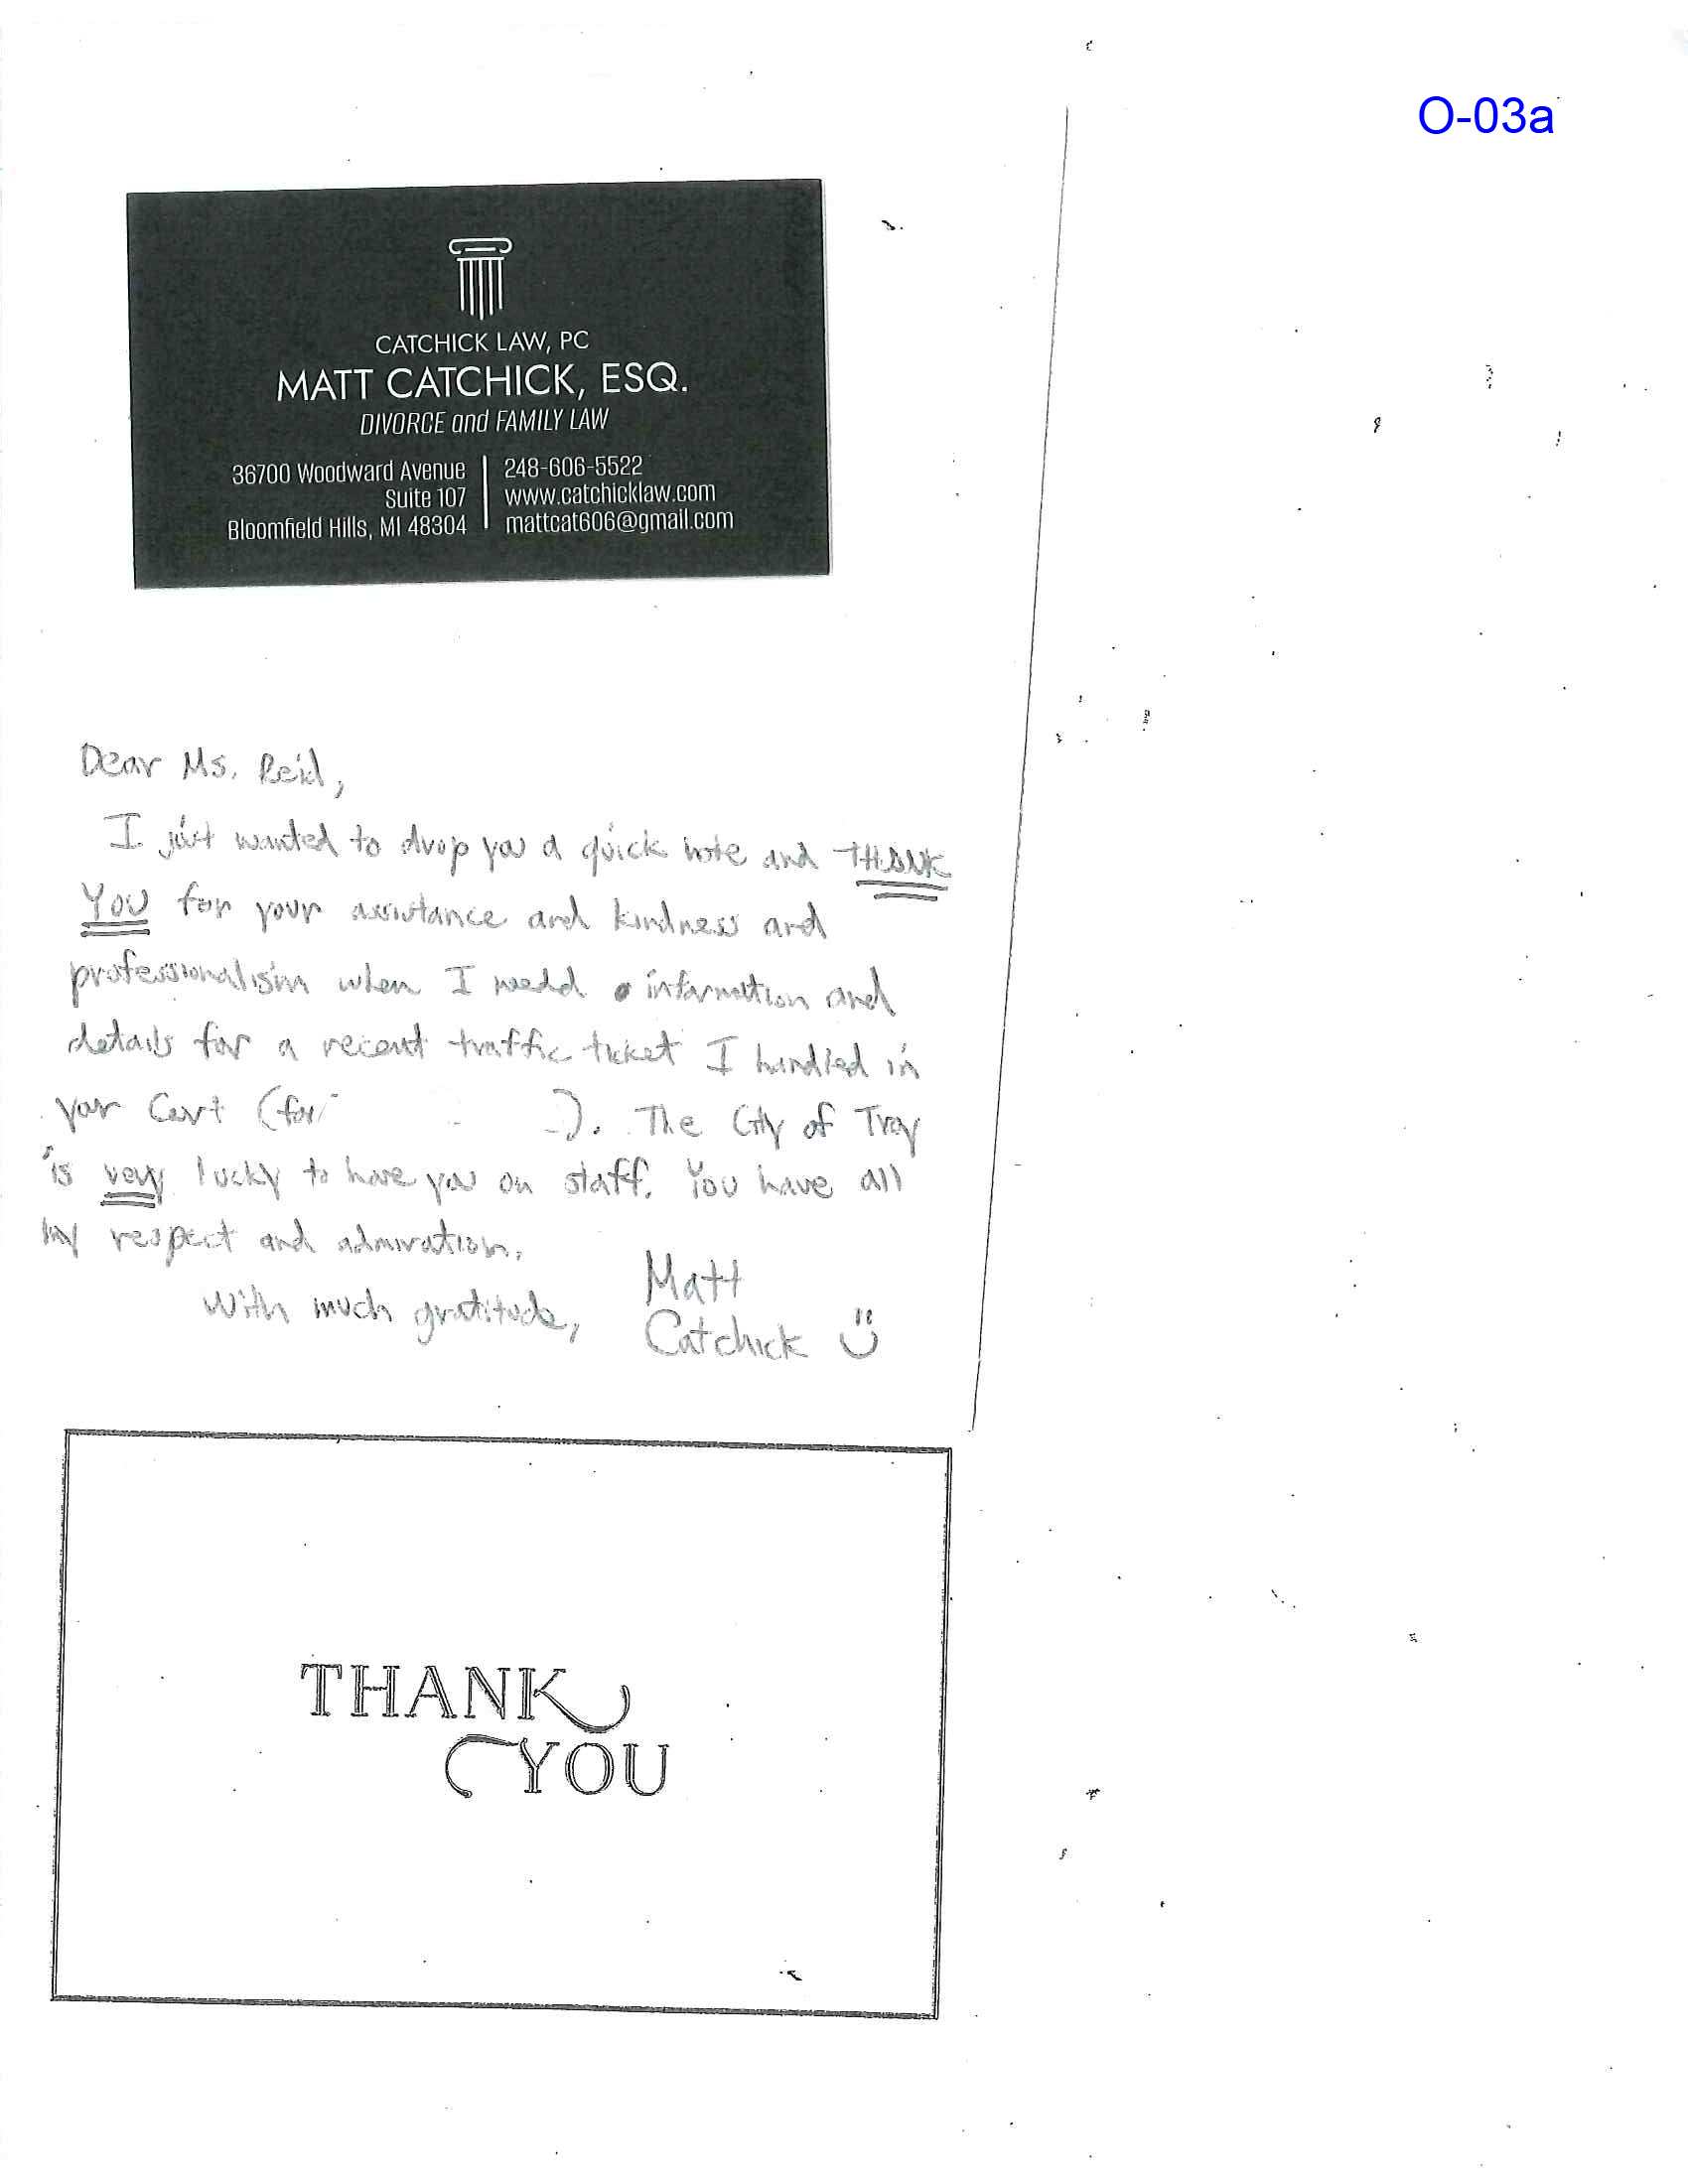 O-03a
CATCHICK LAW, PC
MATT CATCHICK, ESQ.
DIVORCE and FAMILY LAW
36700 Woodward Avenue
Suite 107
Bloomfield Hills, MI 48304
248-606-5522
www.catchicklaw.com
mattcat606@gmail.com
Dear Ms. Reid,
I just wanted to drop you a quick note and THANK
YOU for your assistance and kindness and
professionalism when I needd information and
details for a recent traffic ticket I handled in
your Court (for ). The City of Troy
is very lucky to have you on staff. You have all
my respect and admiration.
With much gratitude,
Matt
Catchick
THANK
YOU